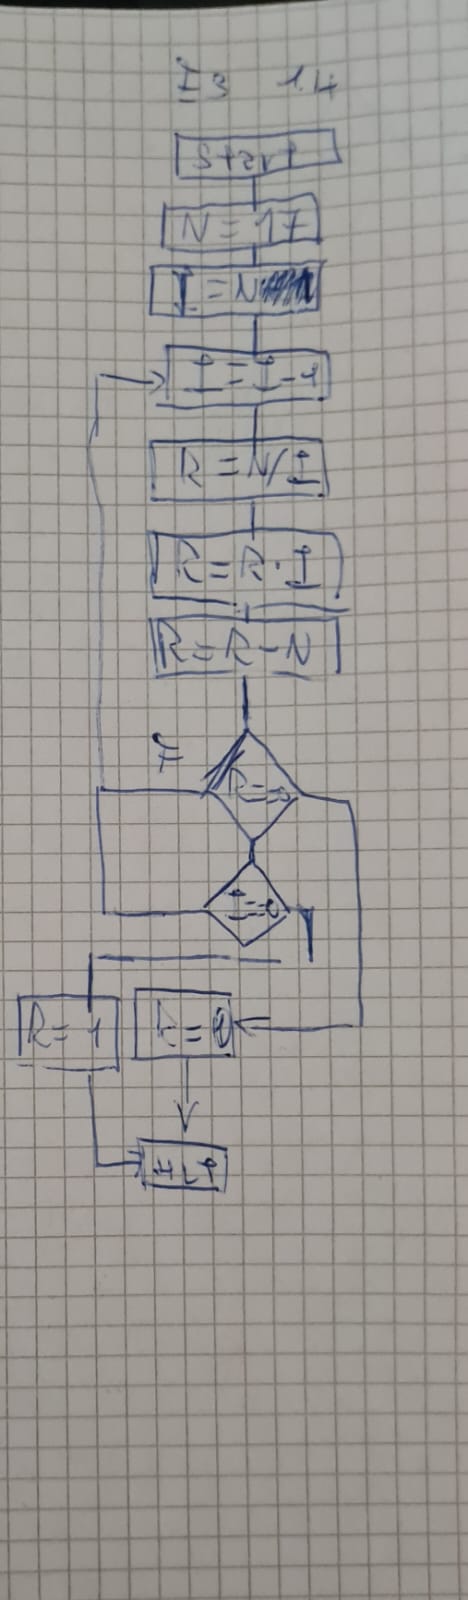 1.4
Start
N = 17
I = N
I = I - 1
R = N / I
R = R · I
R = R - N
R = 0
I = 0
R = 1
R = 0